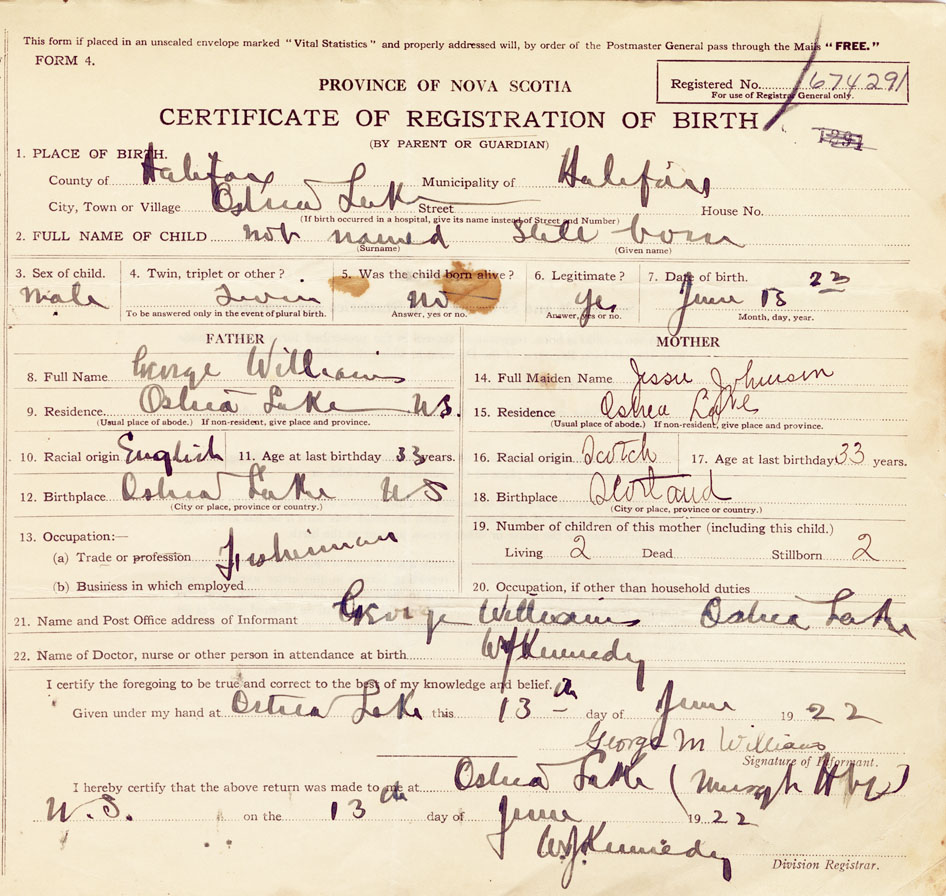 This form if placed in an unsealed envelope marked "Vital Statistics" and properly addressed will, by order of the Postmaster General pass through the Mails "FREE."
FORM 4.
Registered No. 674291
For use of Registrar General only.
PROVINCE OF NOVA SCOTIA
CERTIFICATE OF REGISTRATION OF BIRTH
(BY PARENT OR GUARDIAN)
1. PLACE OF BIRTH.
County of Halifax Municipality of Halifax
City, Town or Village Ostrea Lake Street House No.
(If birth occurred in a hospital, give its name instead of Street and Number)
2. FULL NAME OF CHILD not named Still born
(Surname) (Given name)
3. Sex of child. 4. Twin, triplet or other? 5. Was the child born alive? 6. Legitimate? 7. Date of birth.
Male Twin no yes June 13 22
To be answered only in the event of plural birth. Answer, yes or no. Answer, yes or no. Month, day, year.
FATHER
8. Full Name George Williams
9. Residence Ostrea Lake N.S.
(Usual place of abode.) If non-resident, give place and province.
10. Racial origin English 11. Age at last birthday 33 years.
12. Birthplace Ostrea Lake N S
(City or place, province or country.)
13. Occupation:—
(a) Trade or profession Fisherman
(b) Business in which employed
MOTHER
14. Full Maiden Name Jessie Johnson
15. Residence Ostrea Lake
(Usual place of abode.) If non-resident, give place and province.
16. Racial origin Scotch 17. Age at last birthday 33 years.
18. Birthplace Scotland
(City or place, province or country.)
19. Number of children of this mother (including this child.)
Living 2 Dead Stillborn 2
20. Occupation, if other than household duties
21. Name and Post Office address of Informant George Williams Ostrea Lake
22. Name of Doctor, nurse or other person in attendance at birth W J Kennedy
I certify the foregoing to be true and correct to the best of my knowledge and belief.
Given under my hand at Ostrea Lake this 13th day of June 1922
George M Williams
Signature of Informant.
I hereby certify that the above return was made to me at Ostrea Lake (
N.S. on the 13th day of June 1922
W.J. Kennedy
Division Registrar.